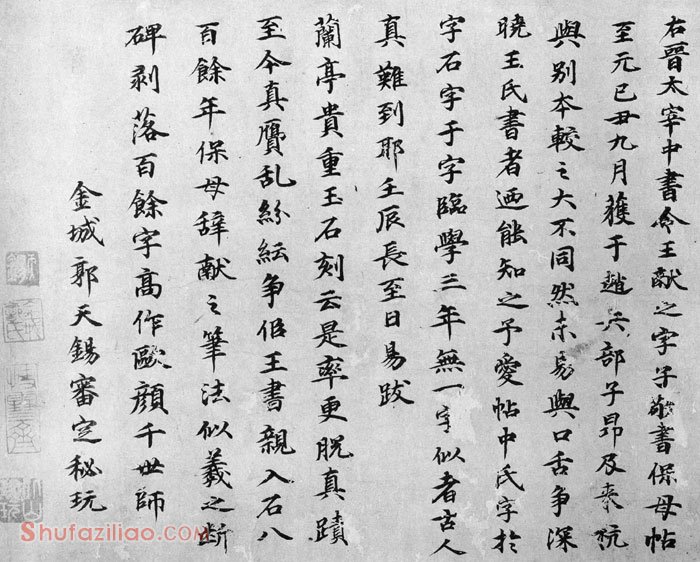 右晉太宰中書令王獻之字子敬書保母帖
至元己丑九月獲于趙兵部子昂及来杭
與别本較之大不同然未易與口舌争深
曉王氏書者迺能知之予愛帖中氏字於
字石字于字臨學三年無一字似者古人
真難到耶壬辰長至日易跋
蘭亭貴重玉石刻云是率更脱真蹟
至今真贋乱紛紜争佀王書親入石八
百餘年保母辞献之筆法似羲之断
碑剥落百餘字高作歐顔千世師
金城郭天錫審定秘玩
Shufaziliao.COM